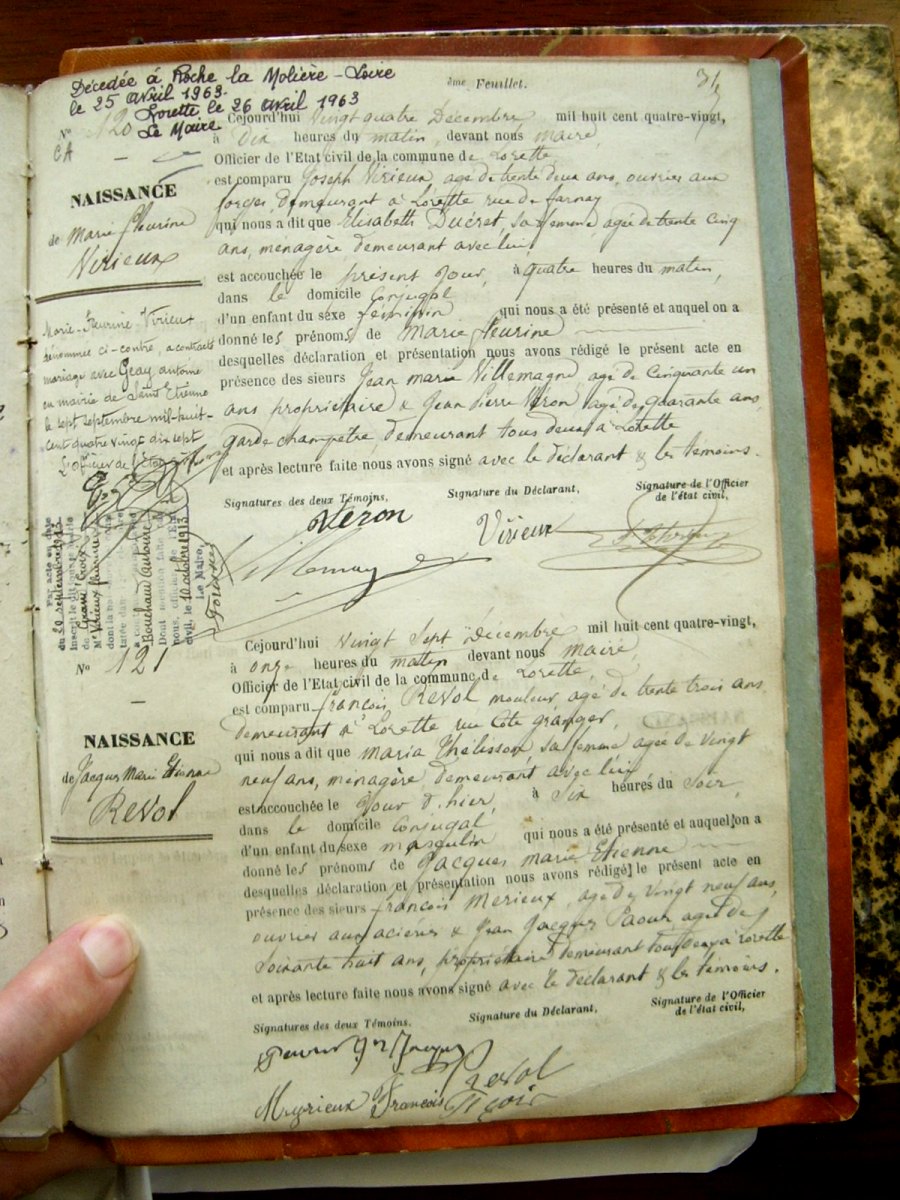 Décedée à Roche la Molière - Loire
le 25 Avril 1963.
Lorette le 26 Avril 1963
Le Maire
ème Feuillet.
31
N° 120
CA
NAISSANCE
de Marie Fleurine
Virieux
Cejourd'hui vingt quatre Décembre mil huit cent quatre-vingt,
à Dix heures du matin, devant nous Maire,
Officier de l'Etat civil de la commune de Lorette
est comparu Joseph Virieux agé de trente deux ans, ouvrier aux
forges, demeurant à Lorette rue de farnay
qui nous a dit que Elisabeth Ducret, sa femme agée de trente cinq
ans, menagère demeurant avec lui,
est accouchée le présent Jour, à quatre heures du matin,
dans le domicile Conjugal
d'un enfant du sexe féminin qui nous a été présenté et auquel on a
donné les prénoms de Marie fleurine
desquelles déclaration et présentation nous avons rédigé le présent acte en
présence des sieurs Jean marie Villemagne, agé de Cinquante un
ans proprietaire & Jean Pierre Véron, agé de quarante ans,
garde champêtre, demeurant tous deux à Lorette
et après lecture faite nous avons signé avec le déclarant & les témoins.
Marie-Fleurine Virieux
dénommée ci-contre, a contracté
mariage avec Geay, antoine
en mairie de Saint Etienne
le sept septembre mil-huit-
cent quatre vingt dix sept
L'officier de l'état civil
Par acte en date
du 20 septembre 1913
inscrit
de Grand'Croix
Me Virieux fleurine
dont la
tatée dans
a contracté
Bouchaud Antoine
Dont mention faite
nous, officier de l'État
civil, le 10 octobre 1913
Le Maire,
Signatures des deux Témoins,
Signature du Déclarant,
Signature de l'Officier
de l'état civil,
Véron
Virieux
N° 121
NAISSANCE
de Jacques Marie Etienne
Revol
Cejourd'hui vingt Sept Décembre mil huit cent quatre-vingt,
à onze heures du matin devant nous Maire,
Officier de l'Etat civil de la commune de Lorette,
est comparu françois Revol mouleur, agé de trente trois ans,
demeurant à Lorette rue Côte granger,
qui nous a dit que maria Thélisson sa femme agée de vingt
neuf ans, ménagère demeurant avec lui
est accouchée le Jour d'hier, à Six heures du Soir,
dans le domicile Conjugal
d'un enfant du sexe masculin qui nous a été présenté et auquel on a
donné les prénoms de Jacques marie Etienne
desquelles déclaration et présentation nous avons rédigé le présent acte en
présence des sieurs françois Merieux, agé de vingt neuf ans,
ouvrier aux aciéries & Jean Jacques agé de
Soixante huit ans, propriétaire demeurant tous deux à Lorette
et après lecture faite nous avons signé avec le déclarant & les témoins.
Signatures des deux Témoins.
Signature du Déclarant,
Signature de l'Officier
de l'état civil,
Revol
François